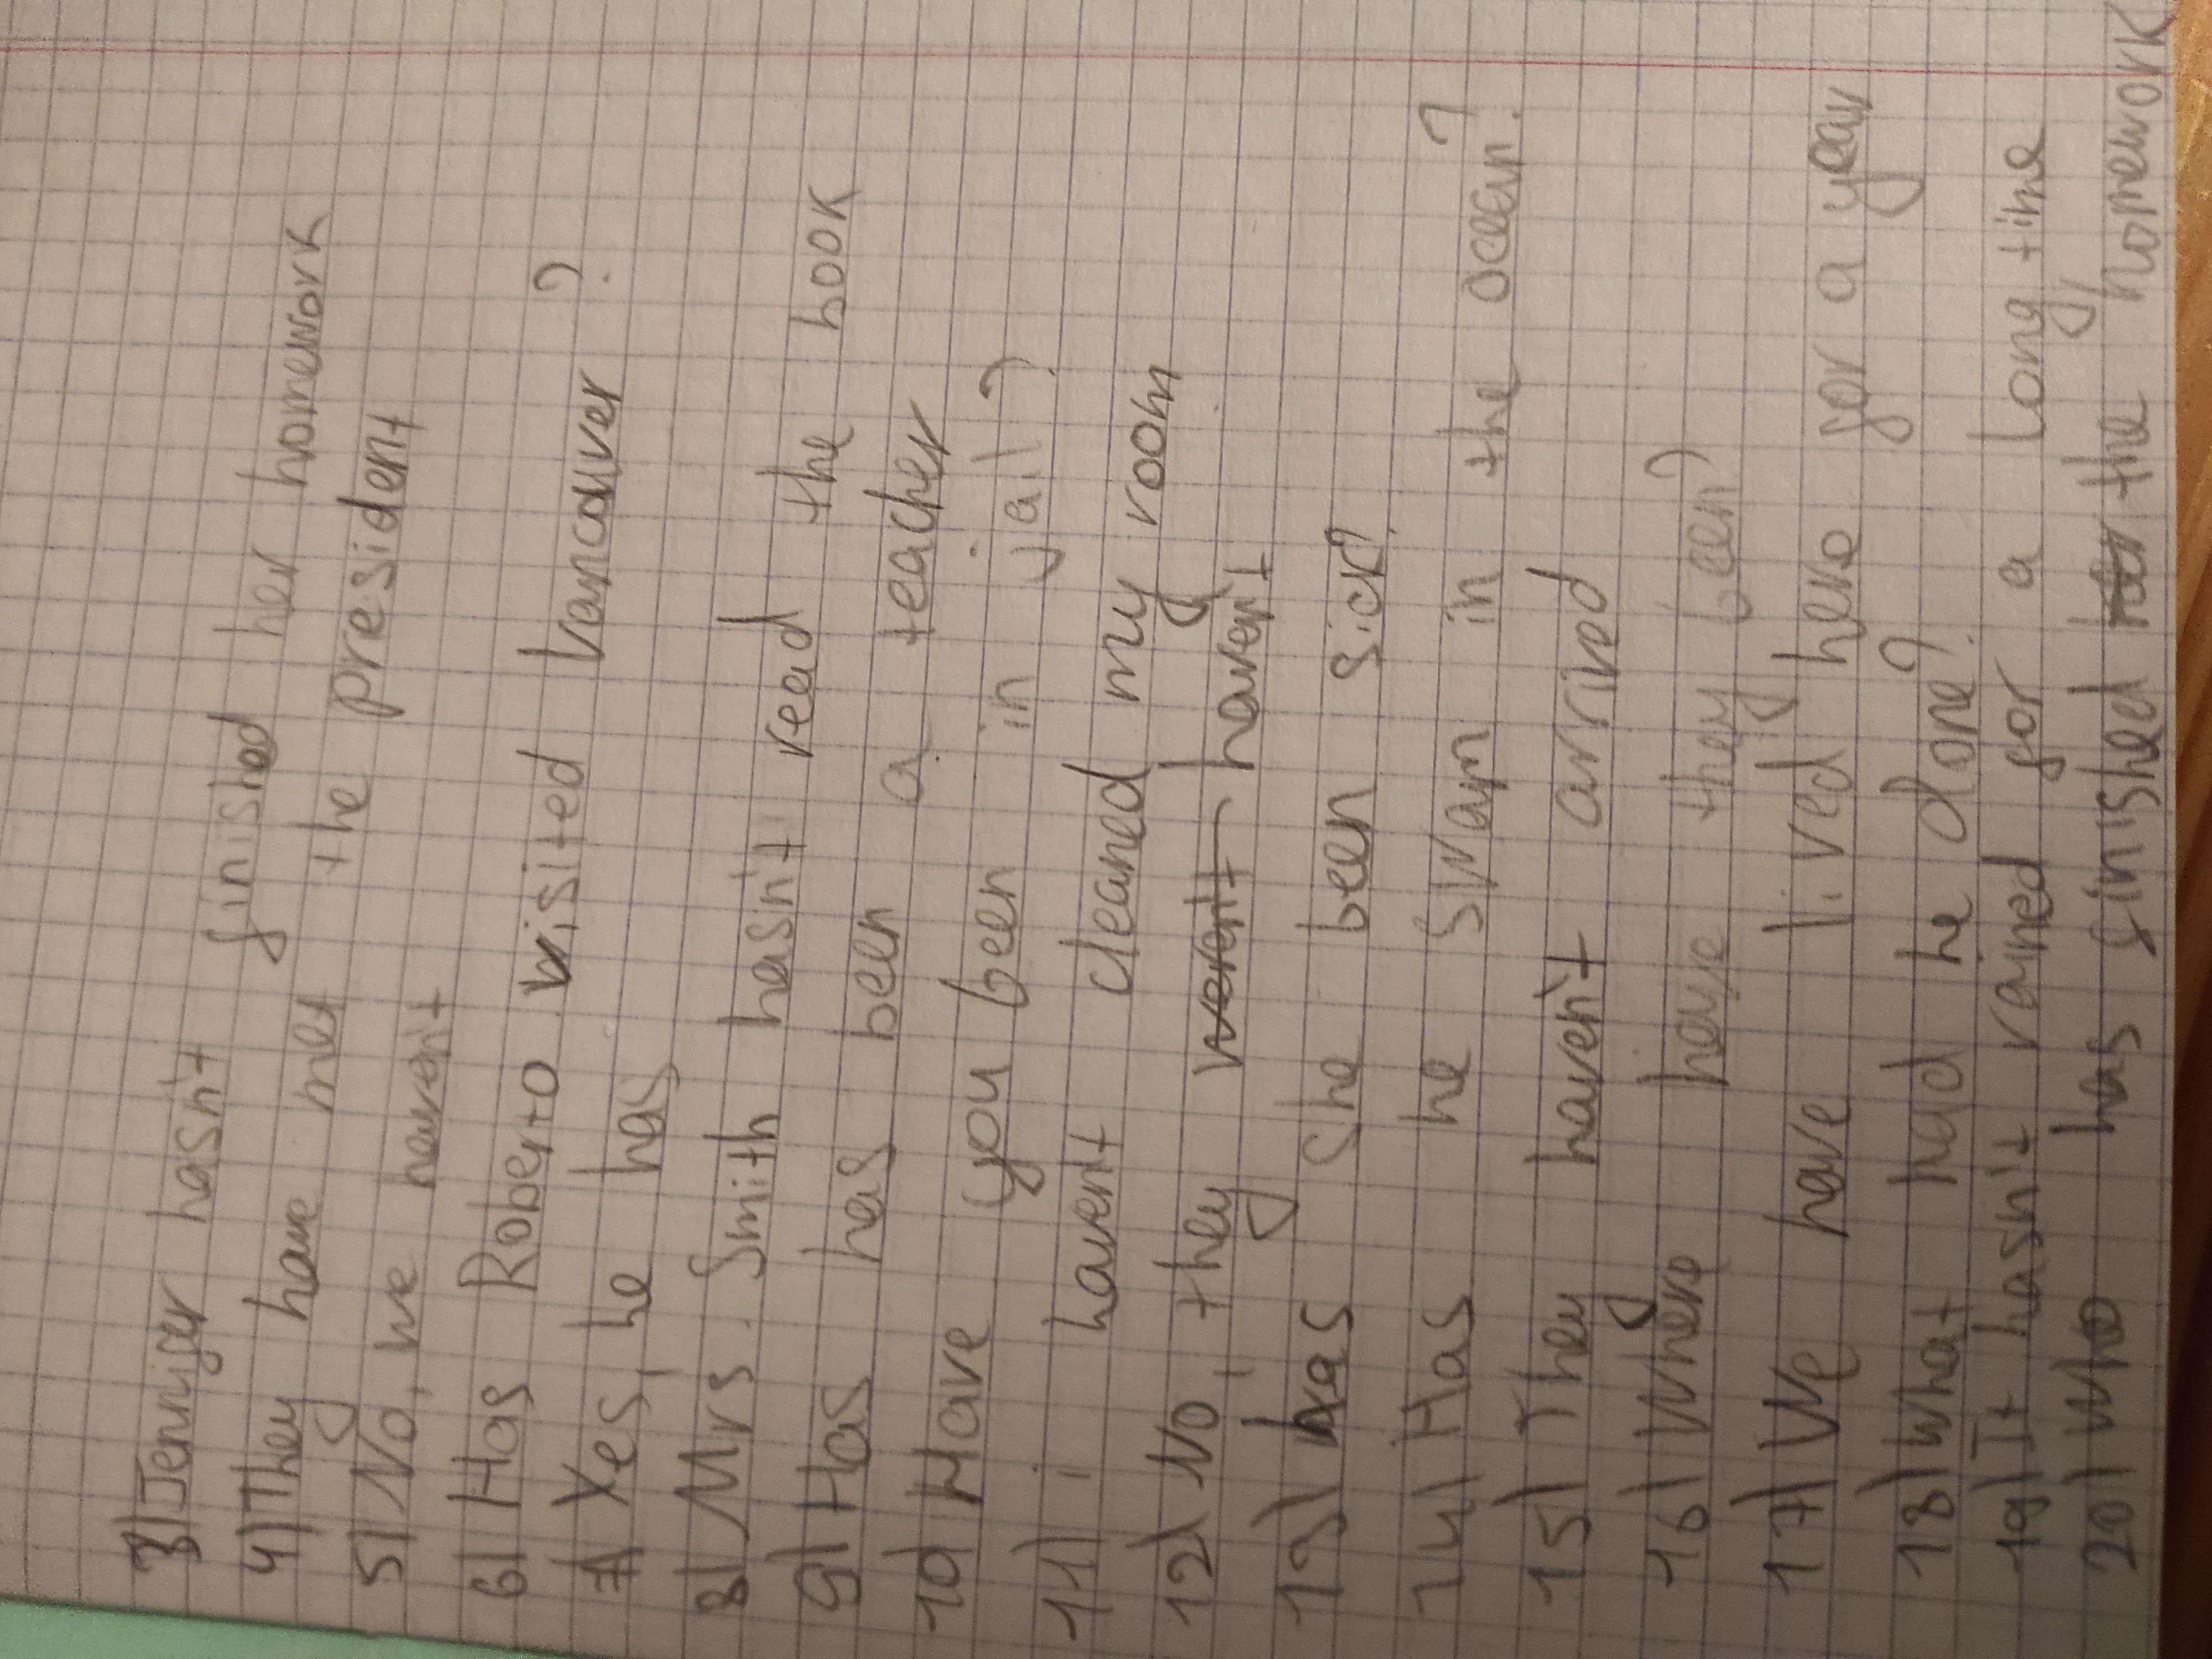 3) Jennifer hasn't finished her homework
4) They have met the president
5) No, we haven't
6) Has Roberto visited Vancouver?
7) Yes, he has
8) Mrs. Smith hasn't read the book
9) Has has been a teacher
10) Have you been in jail?
11) i havent cleaned my room
12) No, they weren't haven't
13) has she been sick?
14) Has he swam in the ocean?
15) They haven't arrived
16) Where have they been?
17) We have lived here for a year
18) what had he done?
19) It hasn't rained for a long time
20) Who has finished the homework